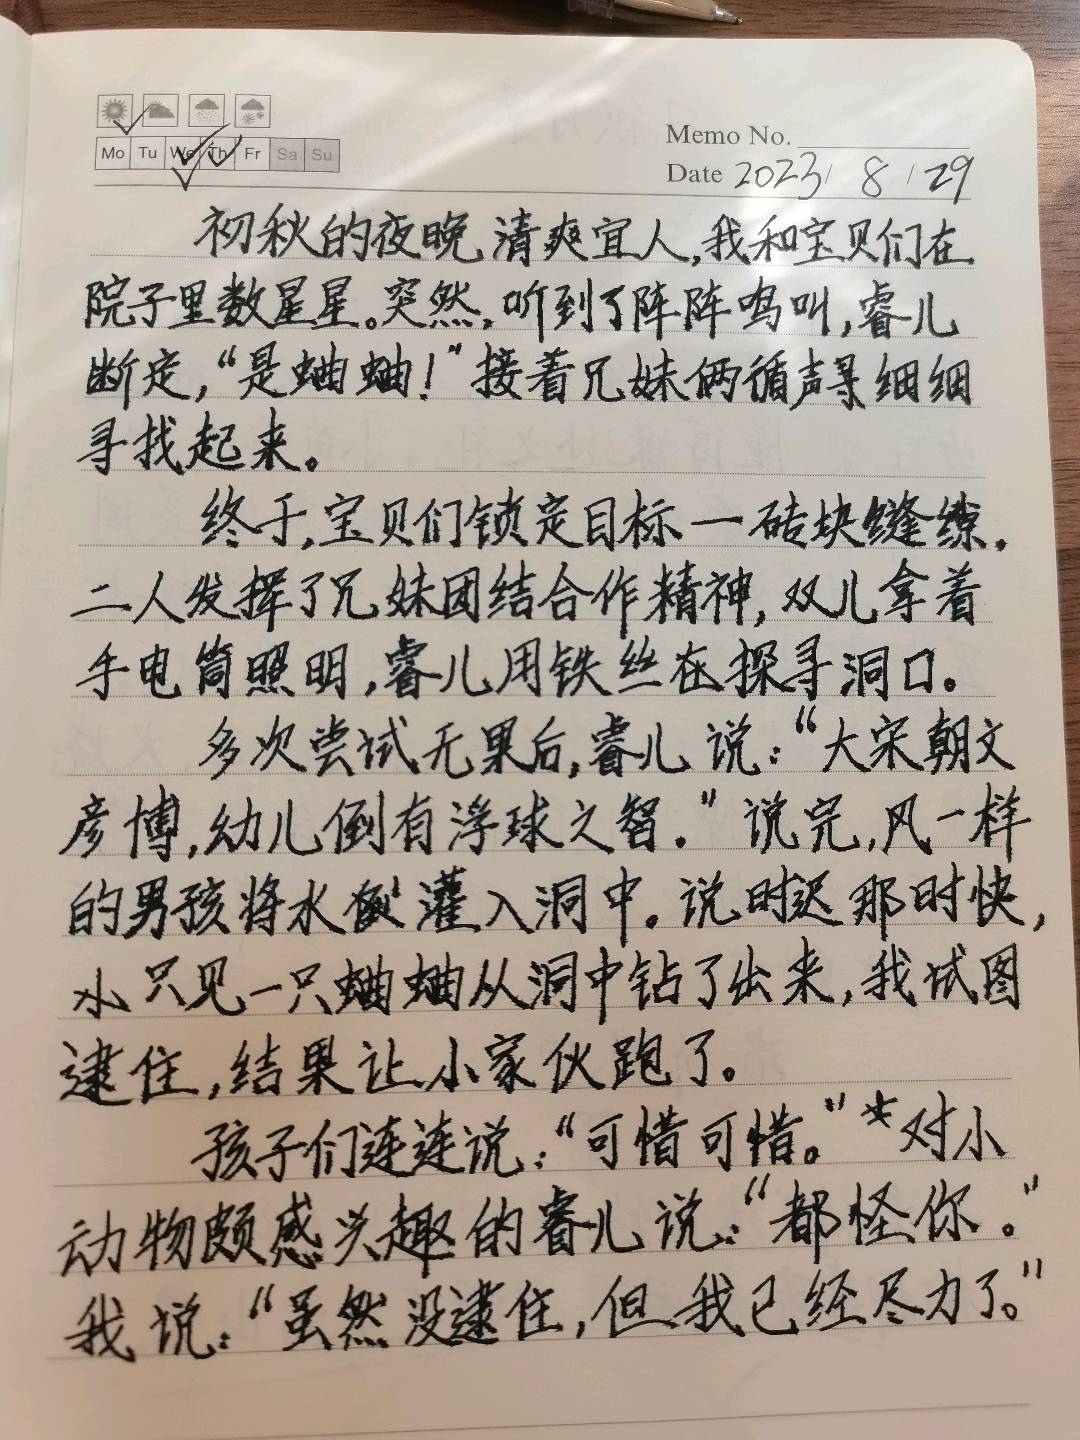 Mo Tu We Th Fr Sa Su
Memo No.
Date 2023/8/29
初秋的夜晚清爽宜人,我和宝贝们在
院子里数星星。突然,听到了阵阵鸣叫,睿儿
断定,“是蛐蛐!”接着兄妹俩循声细细
寻找起来。
终于,宝贝们锁定目标一砖块缝
二人发挥了兄妹团结合作精神,双儿拿着
手电筒照明,睿儿用铁丝在探寻洞口。
多次尝试无果后,睿儿说:“大宋朝文
彦博,幼儿倒有浮球之智。”说完,风一样
的男孩将水灌入洞中。说时迟那时快,
只见一只蛐蛐从洞中钻了出来,我试图
逮住,结果让小家伙跑了。
孩子们连连说:“可惜可惜。”对小
动物颇感兴趣的睿儿说:“都怪你。”
我说:“虽然没逮住,但我已经尽力了。”